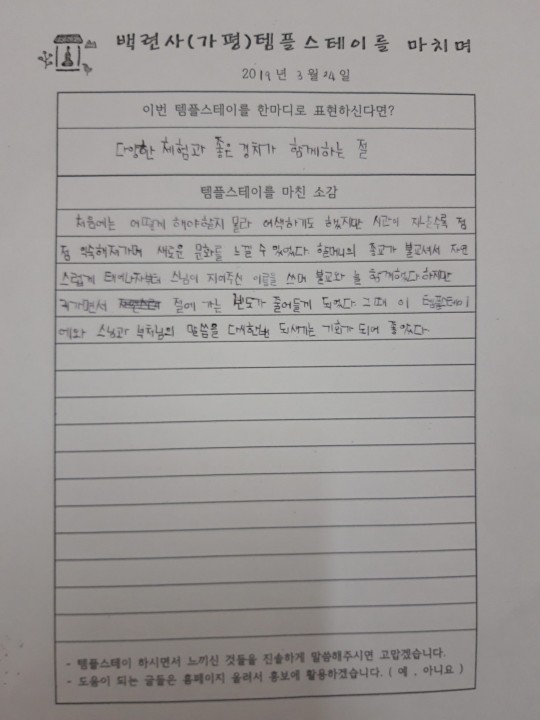 백련사(가평)템플스테이를 마치며
2019년 3월 24일
이번 템플스테이를 한마디로 표현하신다면?
다양한 체험과 좋은 경치가 함께하는 절
템플스테이를 마친 소감
처음에는 어떻게 해야할지 몰라 어색하기도 했지만 시간이 지날수록 점
점 익숙해져가며 새로운 문화를 느낄 수 있었다. 할머니의 종교가 불교셔서 자연
스럽게 태어나자부터 스님이 지어주신 이름을 쓰며 불교와 늘 함께했다 하지만
커가면서 절에 가는 빈도가 줄어들게 되었다 그때 이 템플스테이
에와 스님과 부처님의 말씀을 다시한번 되새기는 기회가 되어 좋았다
- 템플스테이 하시면서 느끼신 것들을 진솔하게 말씀해주시면 고맙겠습니다.
- 도움이 되는 글들은 홈페이지 올려서 홍보에 활용하겠습니다. ( 예 , 아니요 )